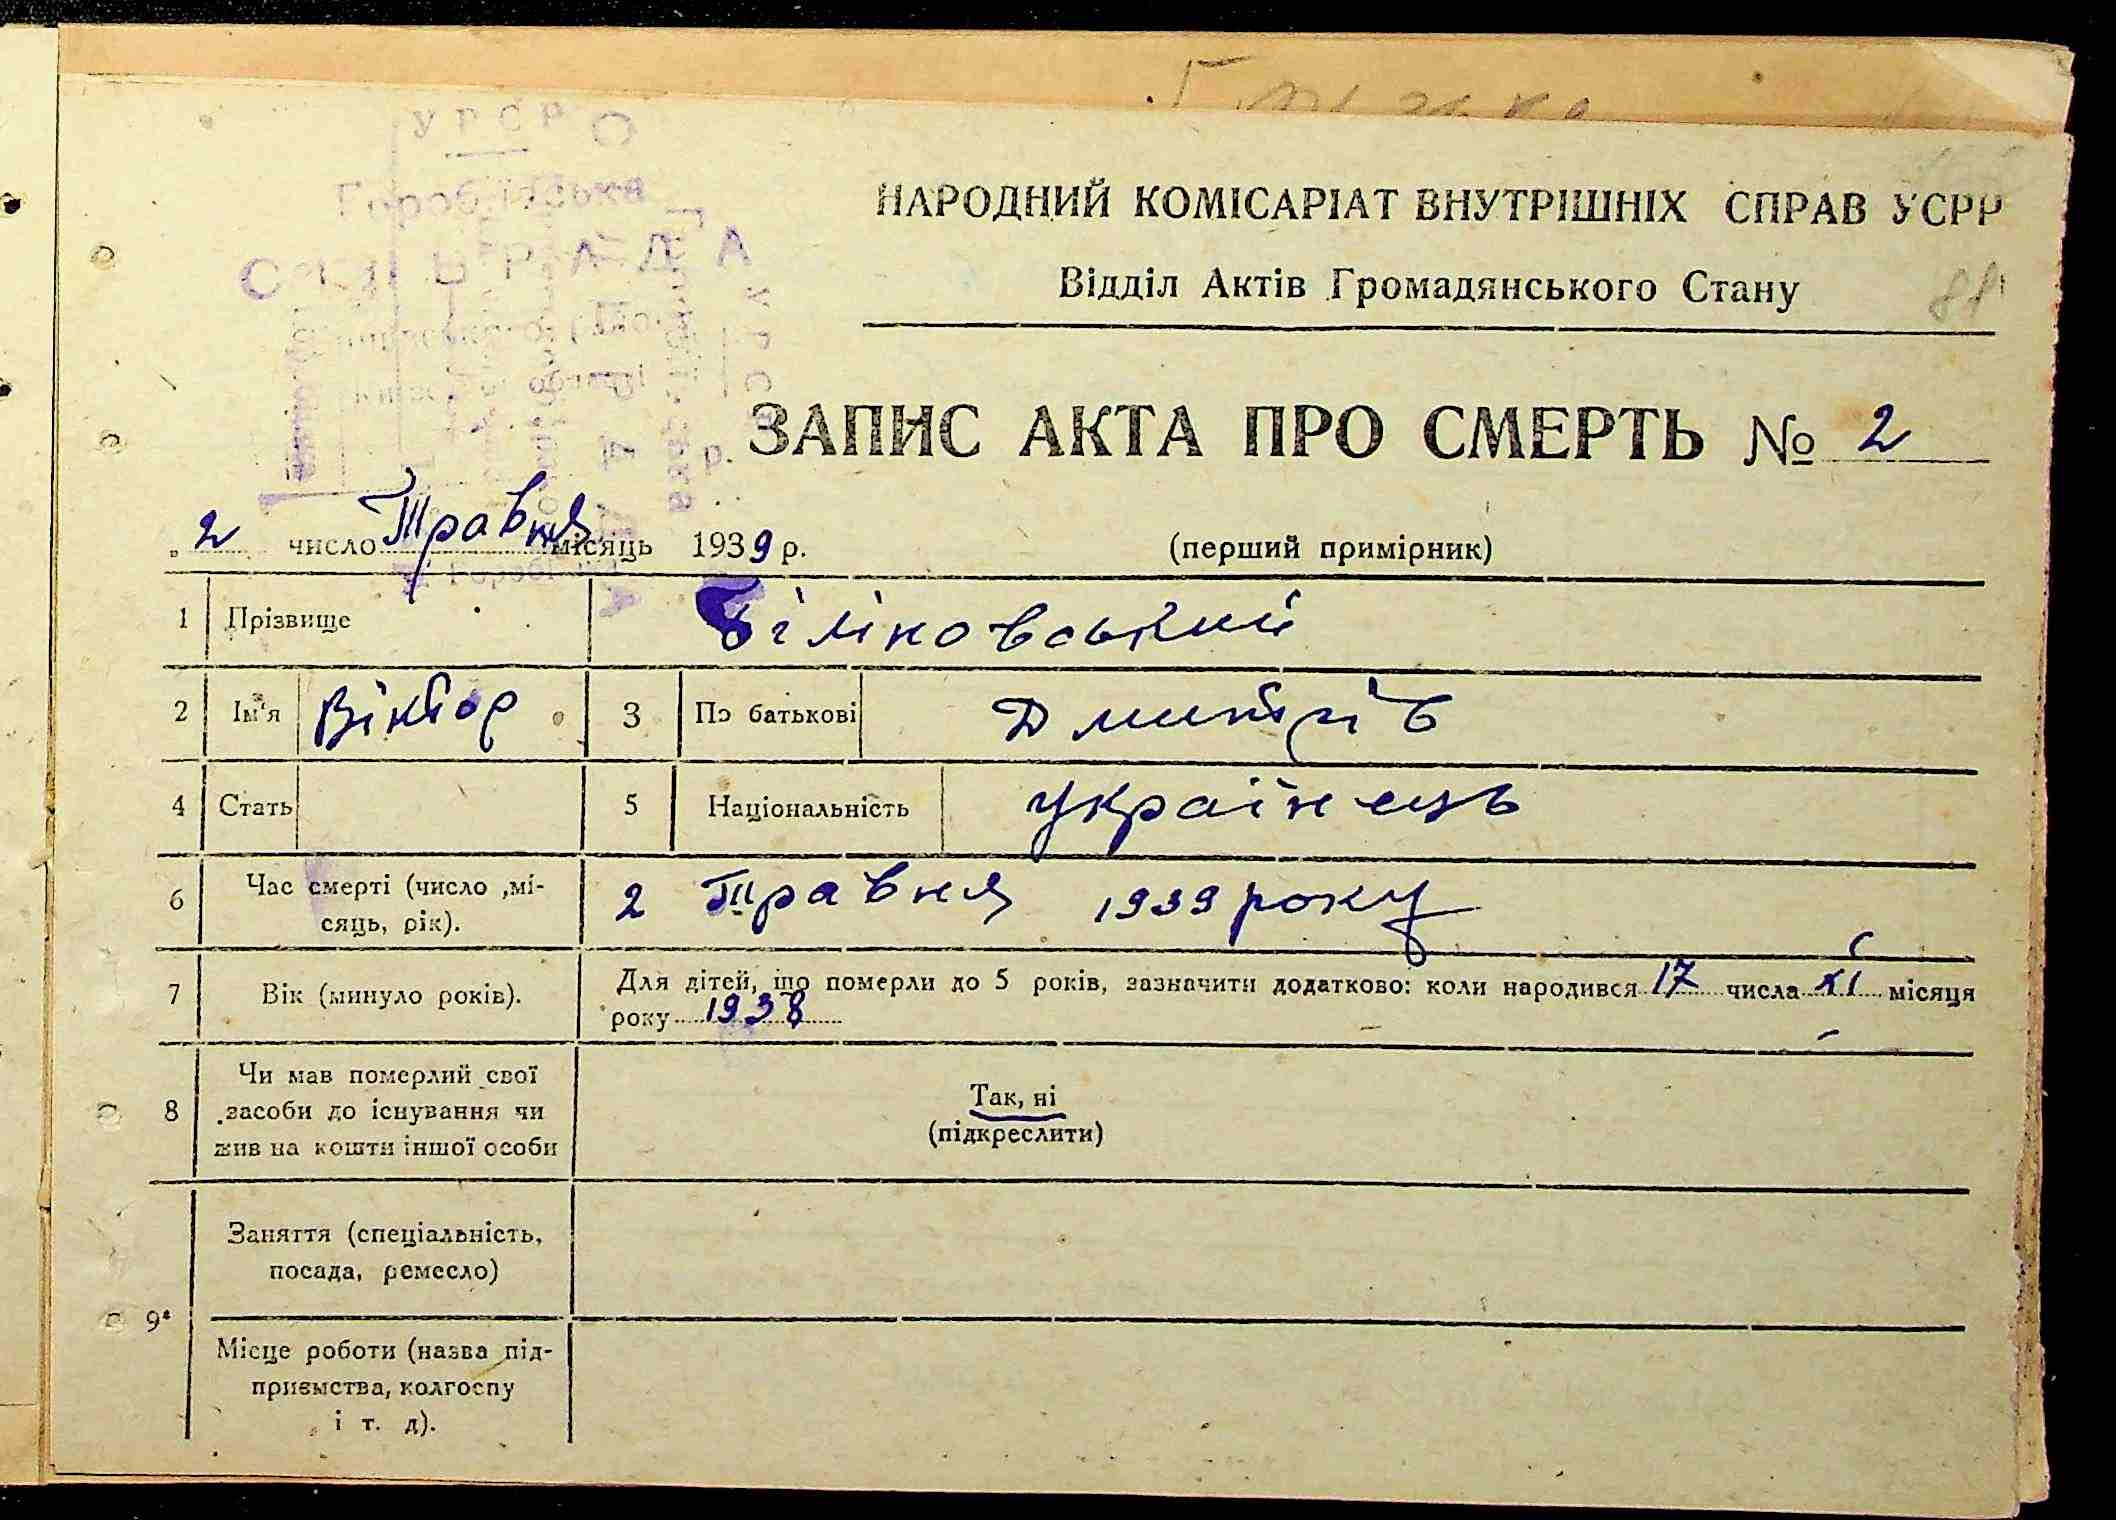 УРСР
СІЛЬРАДА
НАРОДНИЙ КОМІСАРІАТ ВНУТРІШНІХ СПРАВ УСРР
Відділ Актів Громадянського Стану
ЗАПИС АКТА ПРО СМЕРТЬ № 2
„2 число Травня місяць 1939 р. (перший примірник)
1 Прізвище Біліковський
2 Ім'я Віктор 3 По батькові Дмитрів
4 Стать 5 Національність українець
6 Час смерті (число ,мі-
сяць, рік). 2 Травня 1939 року
7 Вік (минуло років). Для дітей, що померли до 5 років, зазначити додатково: коли народився 17 числа XI місяця
року 1938
8 Чи мав померлий свої
засоби до існування чи
жив на кошти іншої особи
Так, ні
(підкреслити)
9* Заняття (спеціальність,
посада, ремесло)
Місце роботи (назва під-
приємства, колгоспу
і т. д).